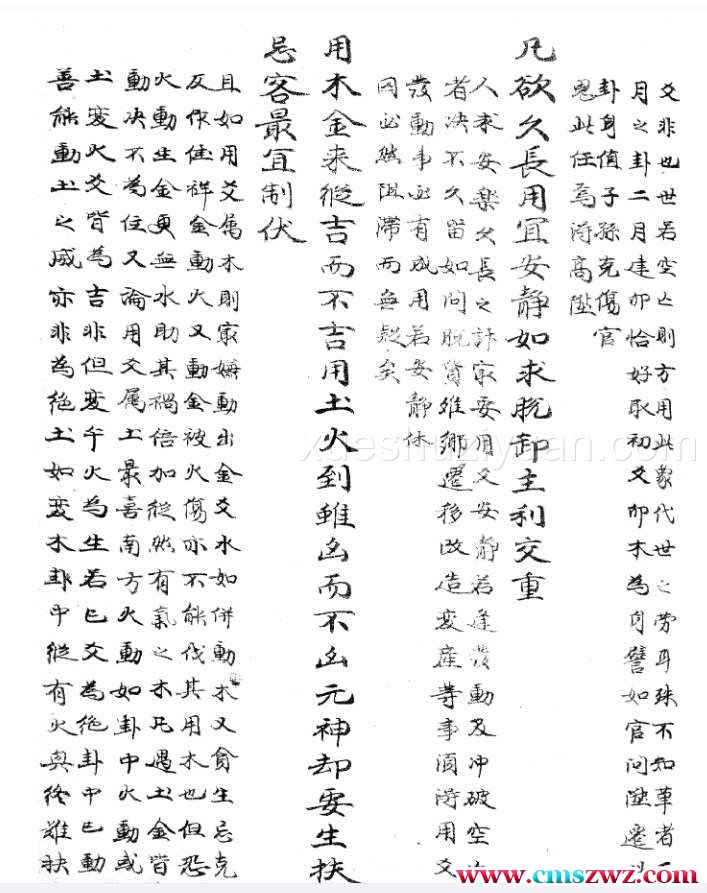 爻非也世若空亡則方用此象代世之劳耳殊不知草者
月之卦二月建卯恰好取初爻卯木為身譬如官問陞遷
卦身值子孫克傷官
鬼此任為得高陞
凡欲久長用宜安静如求脱卸主利交重
人来安樂久長之計家要用爻安静若逢發動及冲破空
者决不久留如問脱貨離鄉遷移改造变産等事須得用爻
發動事必有成用若安静休
囚必然阻滞而無疑矣
用木金来縱吉而不吉用土火到雖凶而不凶元神却要生扶
忌客最宜制伏
且如用爻属木則家嫌動出金爻水如併動木又貪生忌克
反作佳祥金動火又動金被火傷亦不能伐其用木也但恐
火動生金更無水助其禍倍加縱然有氣之木凡遇土金皆
動决不為佳又論用爻属土最喜南方火動如卦中火動或
土变火爻皆為吉非但变午火為生若巳爻為绝卦中巳動
善能動土之威亦非為绝土如变木卦中縱有火與終難扶
xueshuziyuan.com
www.cmszwz.com